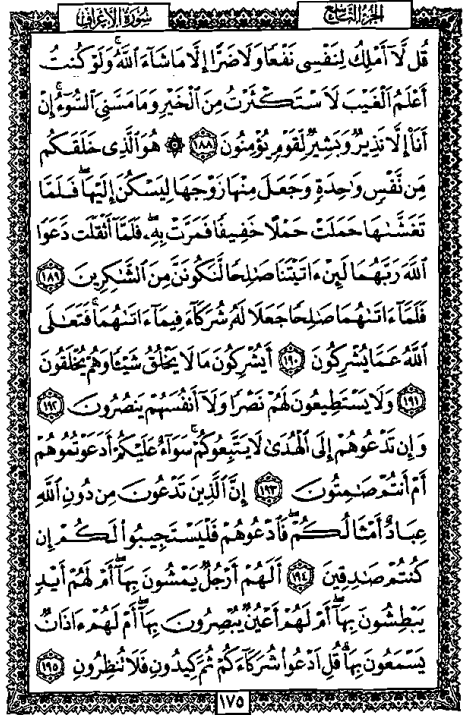 سُورَةُ الأَعْرَافِ الجُزْءُ التَّاسِعُ
قُل لَّآ أَمْلِكُ لِنَفْسِى نَفْعًا وَلَا ضَرًّا إِلَّا مَا شَآءَ ٱللَّهُ ۚ وَلَوْ كُنتُ
أَعْلَمُ ٱلْغَيْبَ لَٱسْتَكْثَرْتُ مِنَ ٱلْخَيْرِ وَمَا مَسَّنِىَ ٱلسُّوٓءُ ۚ إِنْ
أَنَا۠ إِلَّا نَذِيرٌ وَبَشِيرٌ لِّقَوْمٍ يُؤْمِنُونَ ١٨٨ ۞ هُوَ ٱلَّذِى خَلَقَكُم
مِّن نَّفْسٍ وَٰحِدَةٍ وَجَعَلَ مِنْهَا زَوْجَهَا لِيَسْكُنَ إِلَيْهَا ۖ فَلَمَّا
تَغَشَّىٰهَا حَمَلَتْ حَمْلًا خَفِيفًا فَمَرَّتْ بِهِۦ ۖ فَلَمَّآ أَثْقَلَت دَّعَوَا
ٱللَّهَ رَبَّهُمَا لَئِنْ ءَاتَيْتَنَا صَٰلِحًا لَّنَكُونَنَّ مِنَ ٱلشَّٰكِرِينَ ١٨٩
فَلَمَّآ ءَاتَىٰهُمَا صَٰلِحًا جَعَلَا لَهُۥ شُرَكَآءَ فِيمَآ ءَاتَىٰهُمَا ۚ فَتَعَٰلَى
ٱللَّهُ عَمَّا يُشْرِكُونَ ١٩٠ أَيُشْرِكُونَ مَا لَا يَخْلُقُ شَيْـًٔا وَهُمْ يُخْلَقُونَ
١٩١ وَلَا يَسْتَطِيعُونَ لَهُمْ نَصْرًا وَلَآ أَنفُسَهُمْ يَنصُرُونَ ١٩٢
وَإِن تَدْعُوهُمْ إِلَى ٱلْهُدَىٰ لَا يَتَّبِعُوكُمْ ۚ سَوَآءٌ عَلَيْكُمْ أَدَعَوْتُمُوهُمْ
أَمْ أَنتُمْ صَٰمِتُونَ ١٩٣ إِنَّ ٱلَّذِينَ تَدْعُونَ مِن دُونِ ٱللَّهِ
عِبَادٌ أَمْثَالُكُمْ ۖ فَٱدْعُوهُمْ فَلْيَسْتَجِيبُوا۟ لَكُمْ إِن
كُنتُمْ صَٰدِقِينَ ١٩٤ أَلَهُمْ أَرْجُلٌ يَمْشُونَ بِهَآ ۖ أَمْ لَهُمْ أَيْدٍ
يَبْطِشُونَ بِهَآ ۖ أَمْ لَهُمْ أَعْيُنٌ يُبْصِرُونَ بِهَآ ۖ أَمْ لَهُمْ ءَاذَانٌ
يَسْمَعُونَ بِهَا ۗ قُلِ ٱدْعُوا۟ شُرَكَآءَكُمْ ثُمَّ كِيدُونِ فَلَا تُنظِرُونِ ١٩٥
١٧٥